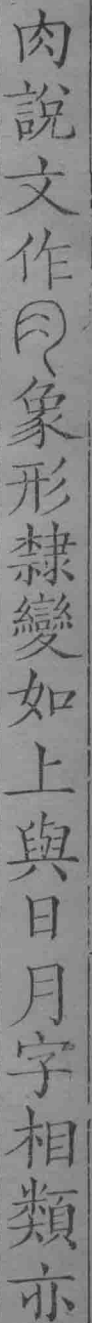 肉說文作⺼象形隸變如上與日月字相類亦